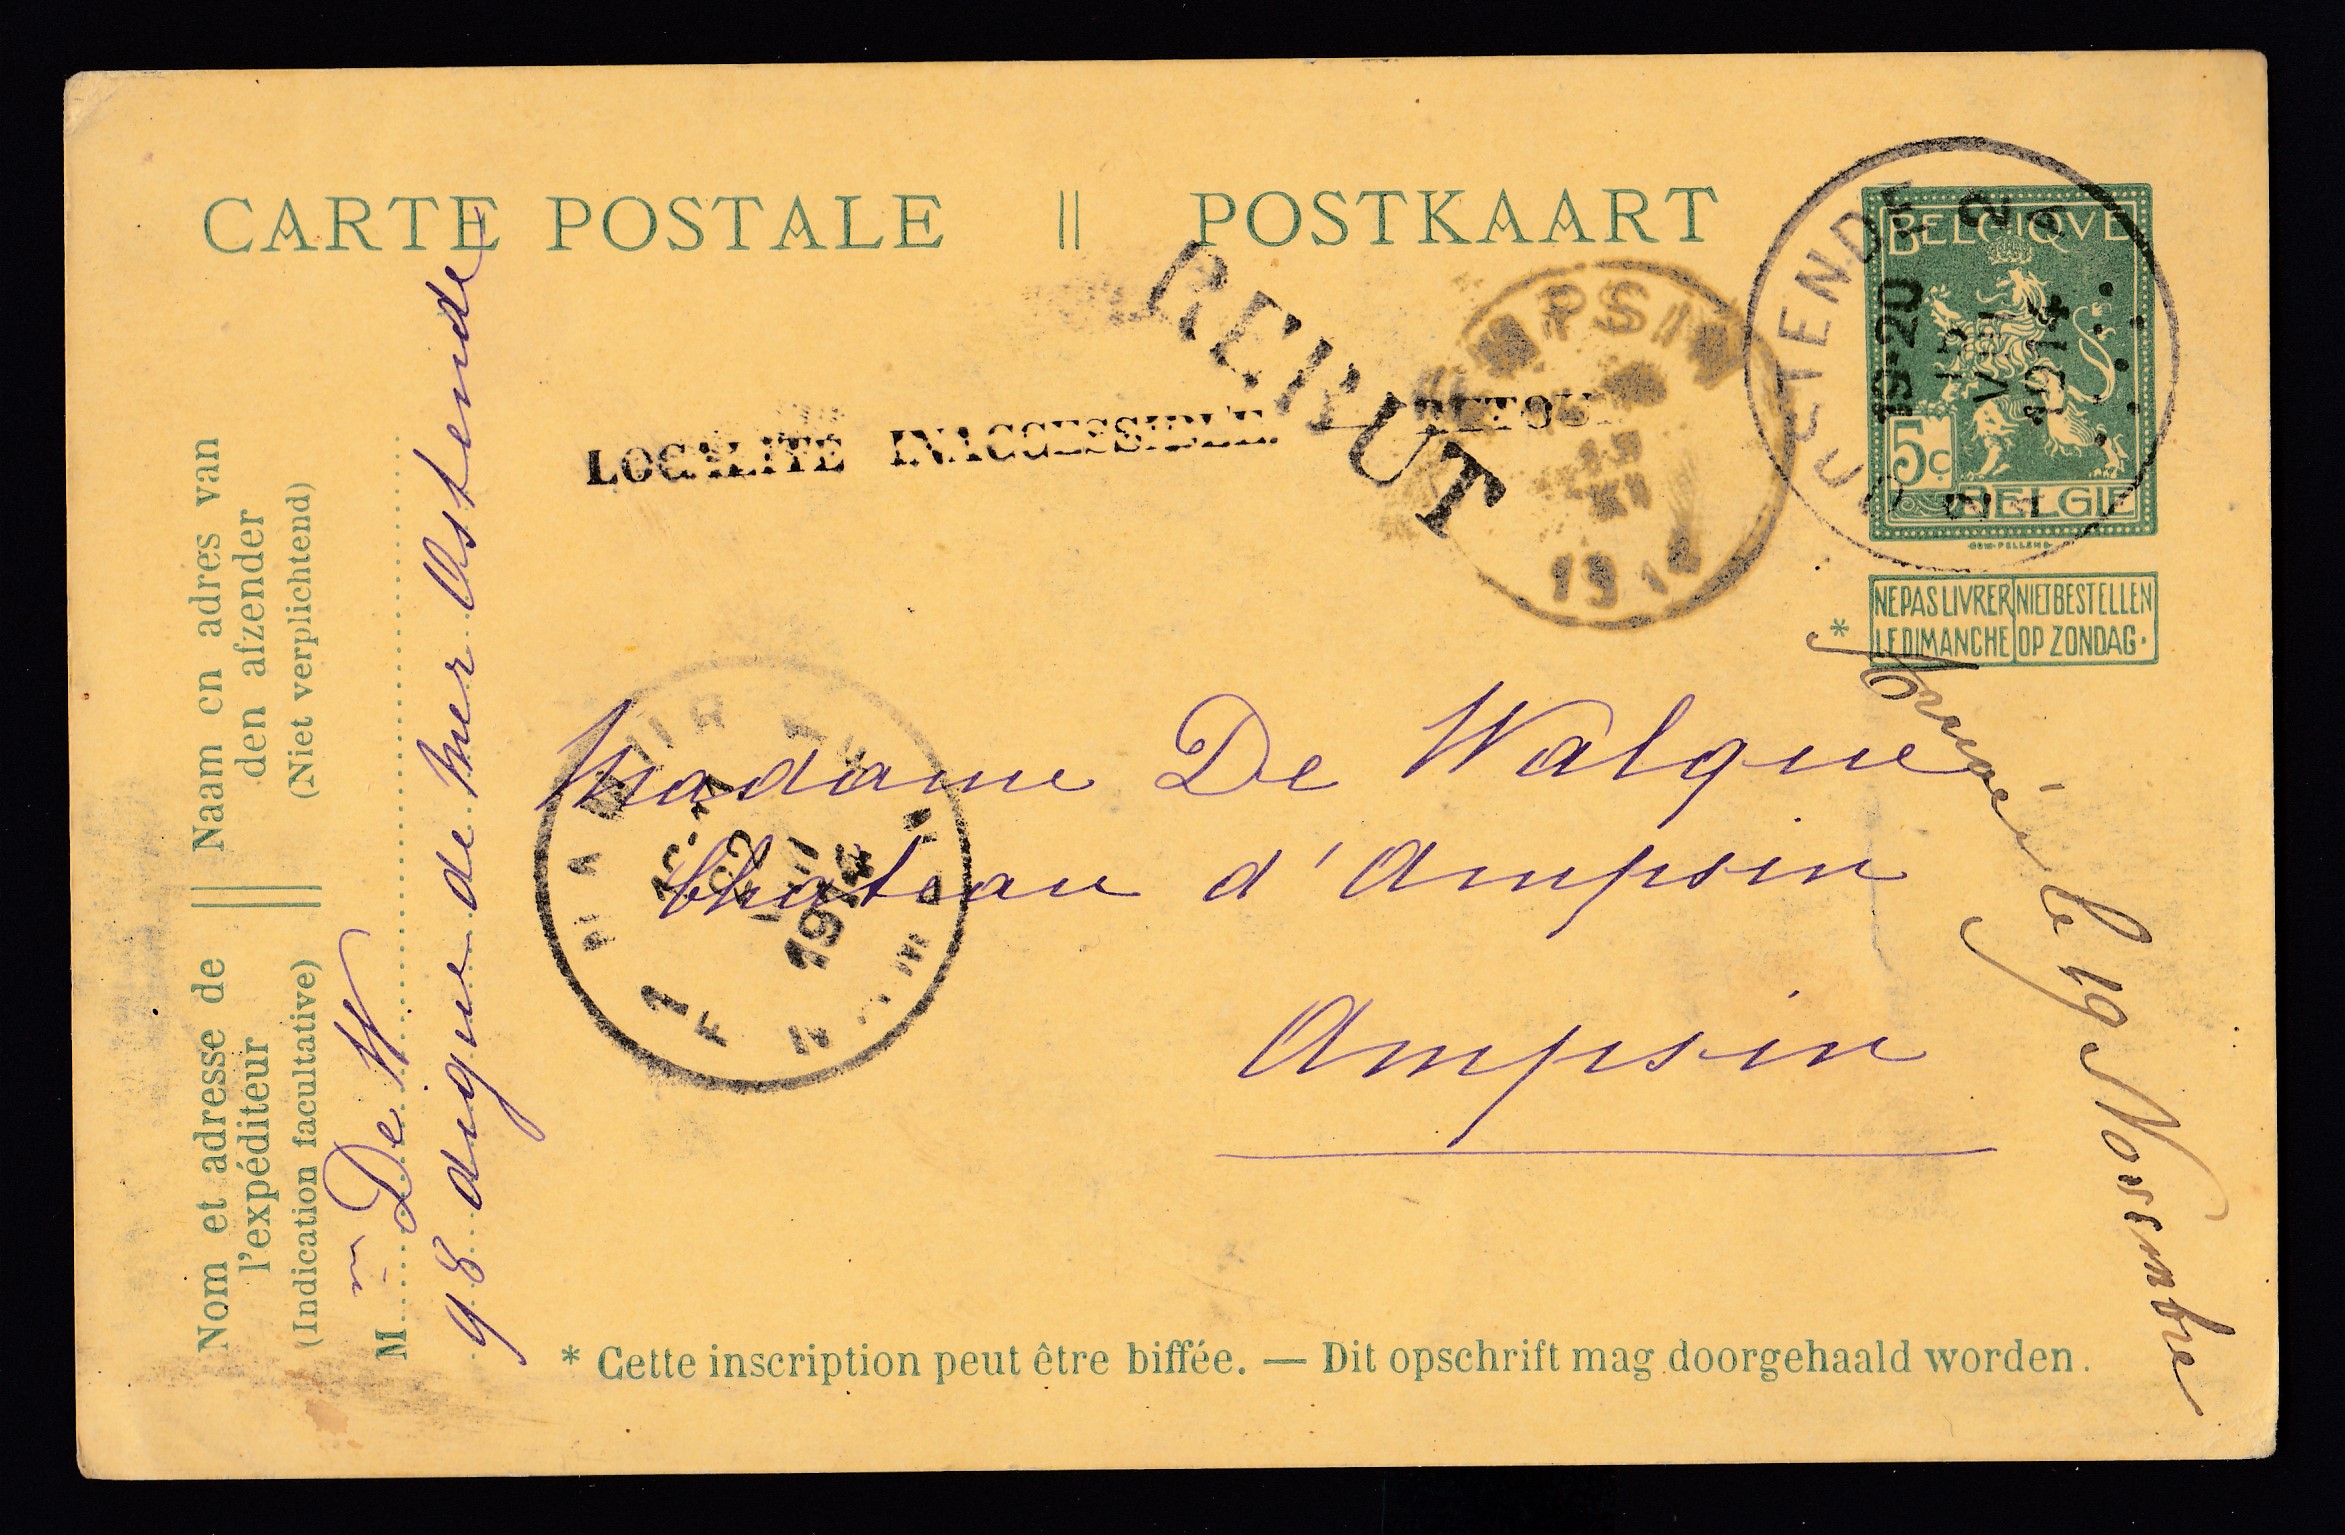 CARTE POSTALE || POSTKAART
BELGIQVE
5c.
BELGIE
OSTENDE
19-20
VIII
1914
NE PAS LIVRER LE DIMANCHE
NIET BESTELLEN OP ZONDAG.
*
REBUT
LOCALITÉ INACCESSIBLE. — RETOUR
AMPSIN
XI
1914
NAMUR
1914
Madame De Walque
Chateau d'Ampsin
Ampsin
Arrivée le 19 Novembre
Nom et adresse de l'expéditeur
(Indication facultative)
Naam en adres van den afzender
(Niet verplichtend)
M
De W
98 digue de mer Ostende
* Cette inscription peut être biffée. — Dit opschrift mag doorgehaald worden.